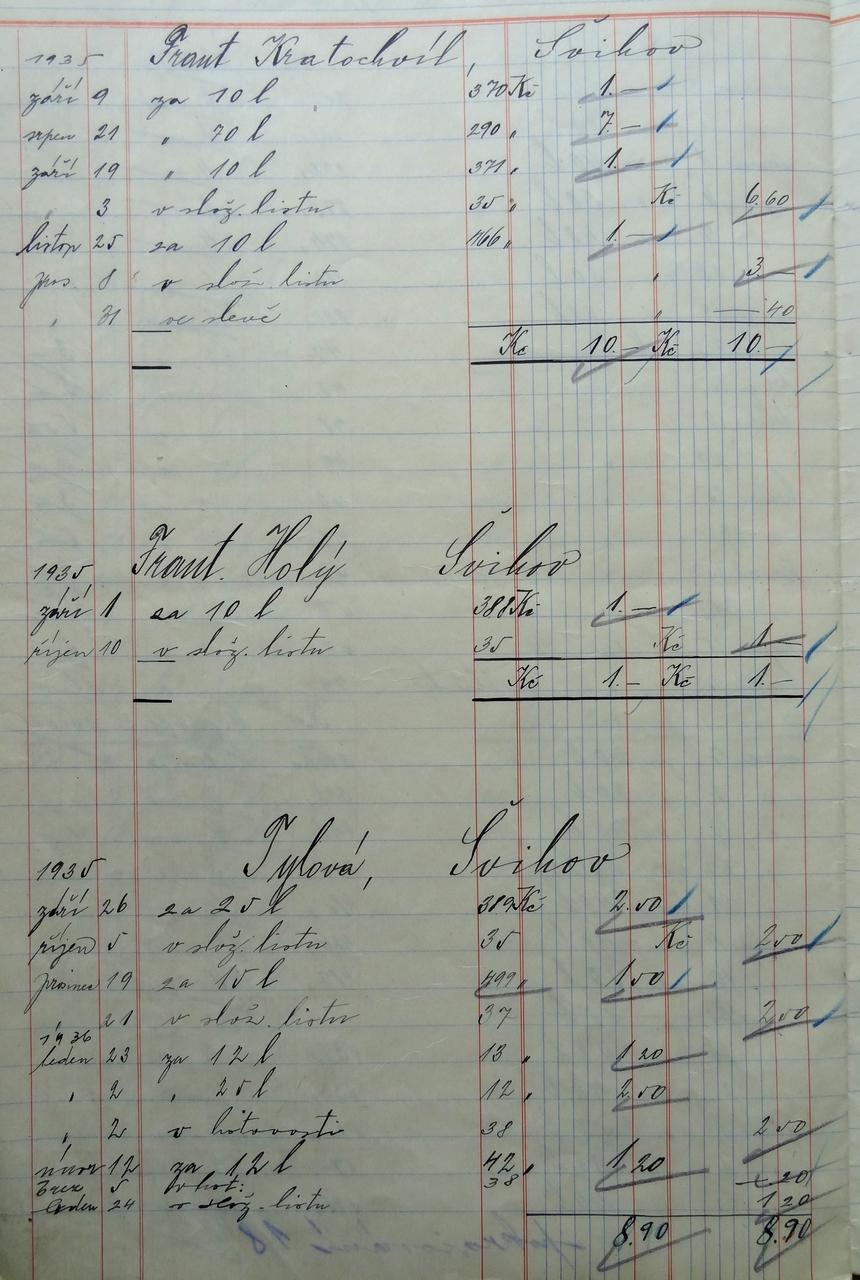 1935 Frant Kratochvíl, Švihov
září 9 za 10 l 370 Kč 1.—
srpen 21 " 70 l 290 " 7.—
září 19 " 10 l 371 " 1.—
" 3 v slož. listu 35 " Kč 6.60
listop 25 za 10 l 466 " 1.—
pros. 8 v slož. listu " 3.—
" 31 ve slevě " —.40
Kč 10.— Kč 10.—
1935 Frant. Holý Švihov
září 1 za 10 l 388 Kč 1.—
říjen 10 v slož. listu 35 Kč 1.—
Kč 1.— Kč 1.—
1935 Tylová, Švihov
září 26 za 25 l 389 Kč 2.50
říjen 5 v slož. listu 35 Kč 2.50
prosinec 19 za 15 l 499 " 1.50
" 21 v slož. listu 37 2.50
1936
leden 23 za 12 l 13 " 1.20
" 2 " 25 l 12 " 2.50
" 2 v hotovosti 38 2.50
únor 12 za 12 l 42 " 1.20
břez 5 v hot: 38 .20
leden 24 v slož. listu 1.20
8.90 8.90